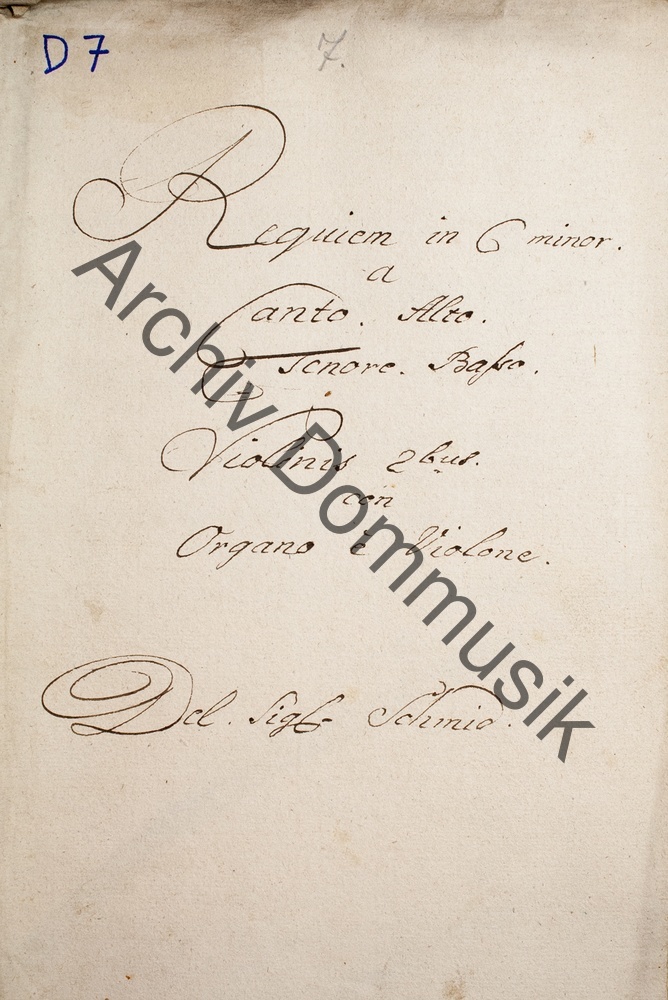 D 7
7.
Requiem in G minor.
a
Canto. Alto.
Tenore. Basso.
Violinis 2bus.
con
Organo è Violone.
Del. Sigr Schmid.
Archiv Dommusik